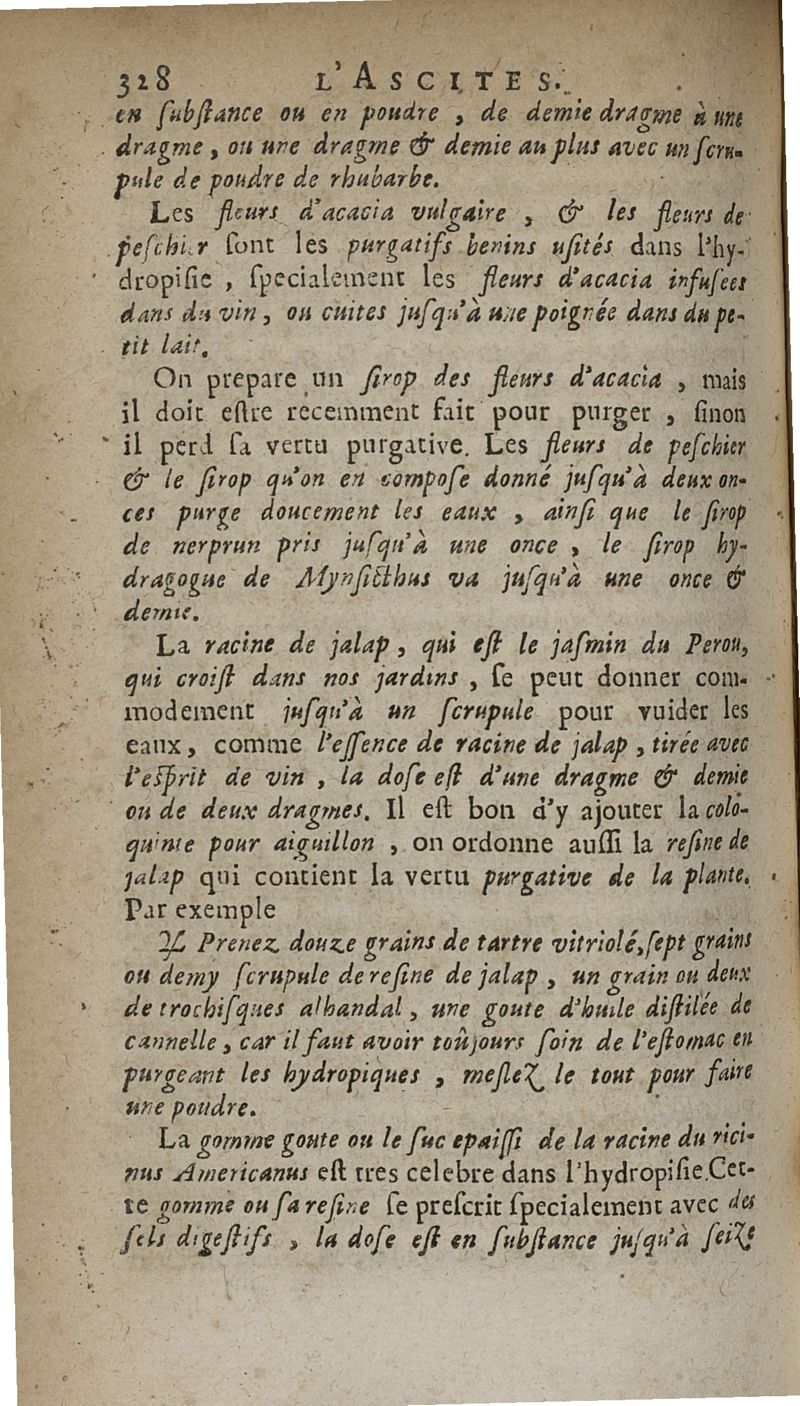 328 L'ASCITES.
en ſubſtance ou en poudre, de demie dragme à une
dragme, ou une dragme & demie au plus avec un ſcru-
pule de poudre de rhubarbe.
Les fleurs d'acacia vulgaire, & les fleurs de
peſchier ſont les purgatifs benins uſités dans l'hy-
dropiſie, ſpecialement les fleurs d'acacia infuſées
dans du vin, ou cuites juſqu'à une poignée dans du pe-
tit lait.
On prepare un ſirop des fleurs d'acacia, mais
il doit eſtre recemment fait pour purger, ſinon
il perd ſa vertu purgative. Les fleurs de peſchier
& le ſirop qu'on en compoſe donné juſqu'à deux on-
ces purge doucement les eaux, ainſi que le ſirop
de nerprun pris juſqu'à une once, le ſirop hy-
dragogue de Mynſicthus va juſqu'à une once &
demie.
La racine de jalap, qui eſt le jaſmin du Perou,
qui croiſt dans nos jardins, ſe peut donner com-
modement juſqu'à un ſcrupule pour vuider les
eaux, comme l'eſſence de racine de jalap, tirée avec
l'eſprit de vin, la doſe eſt d'une dragme & demie
ou de deux dragmes. Il eſt bon d'y ajouter la colo-
quinte pour aiguillon, on ordonne auſſi la reſine de
jalap qui contient la vertu purgative de la plante.
Par exemple
℞ Prenez douze grains de tartre vitriolé, ſept grains
ou demy ſcrupule de reſine de jalap, un grain ou deux
de trochiſques alhandal, une goute d'huile diſtilée de
cannelle, car il faut avoir toûjours ſoin de l'eſtomac en
purgeant les hydropiques, meſlez le tout pour faire
une poudre.
La gomme goute ou le ſuc epaiſſi de la racine du rici-
nus Americanus eſt tres celebre dans l'hydropiſie. Cet-
te gomme ou ſa reſine ſe preſcrit ſpecialement avec des
ſels digeſtifs, la doſe eſt en ſubſtance juſqu'à ſeize